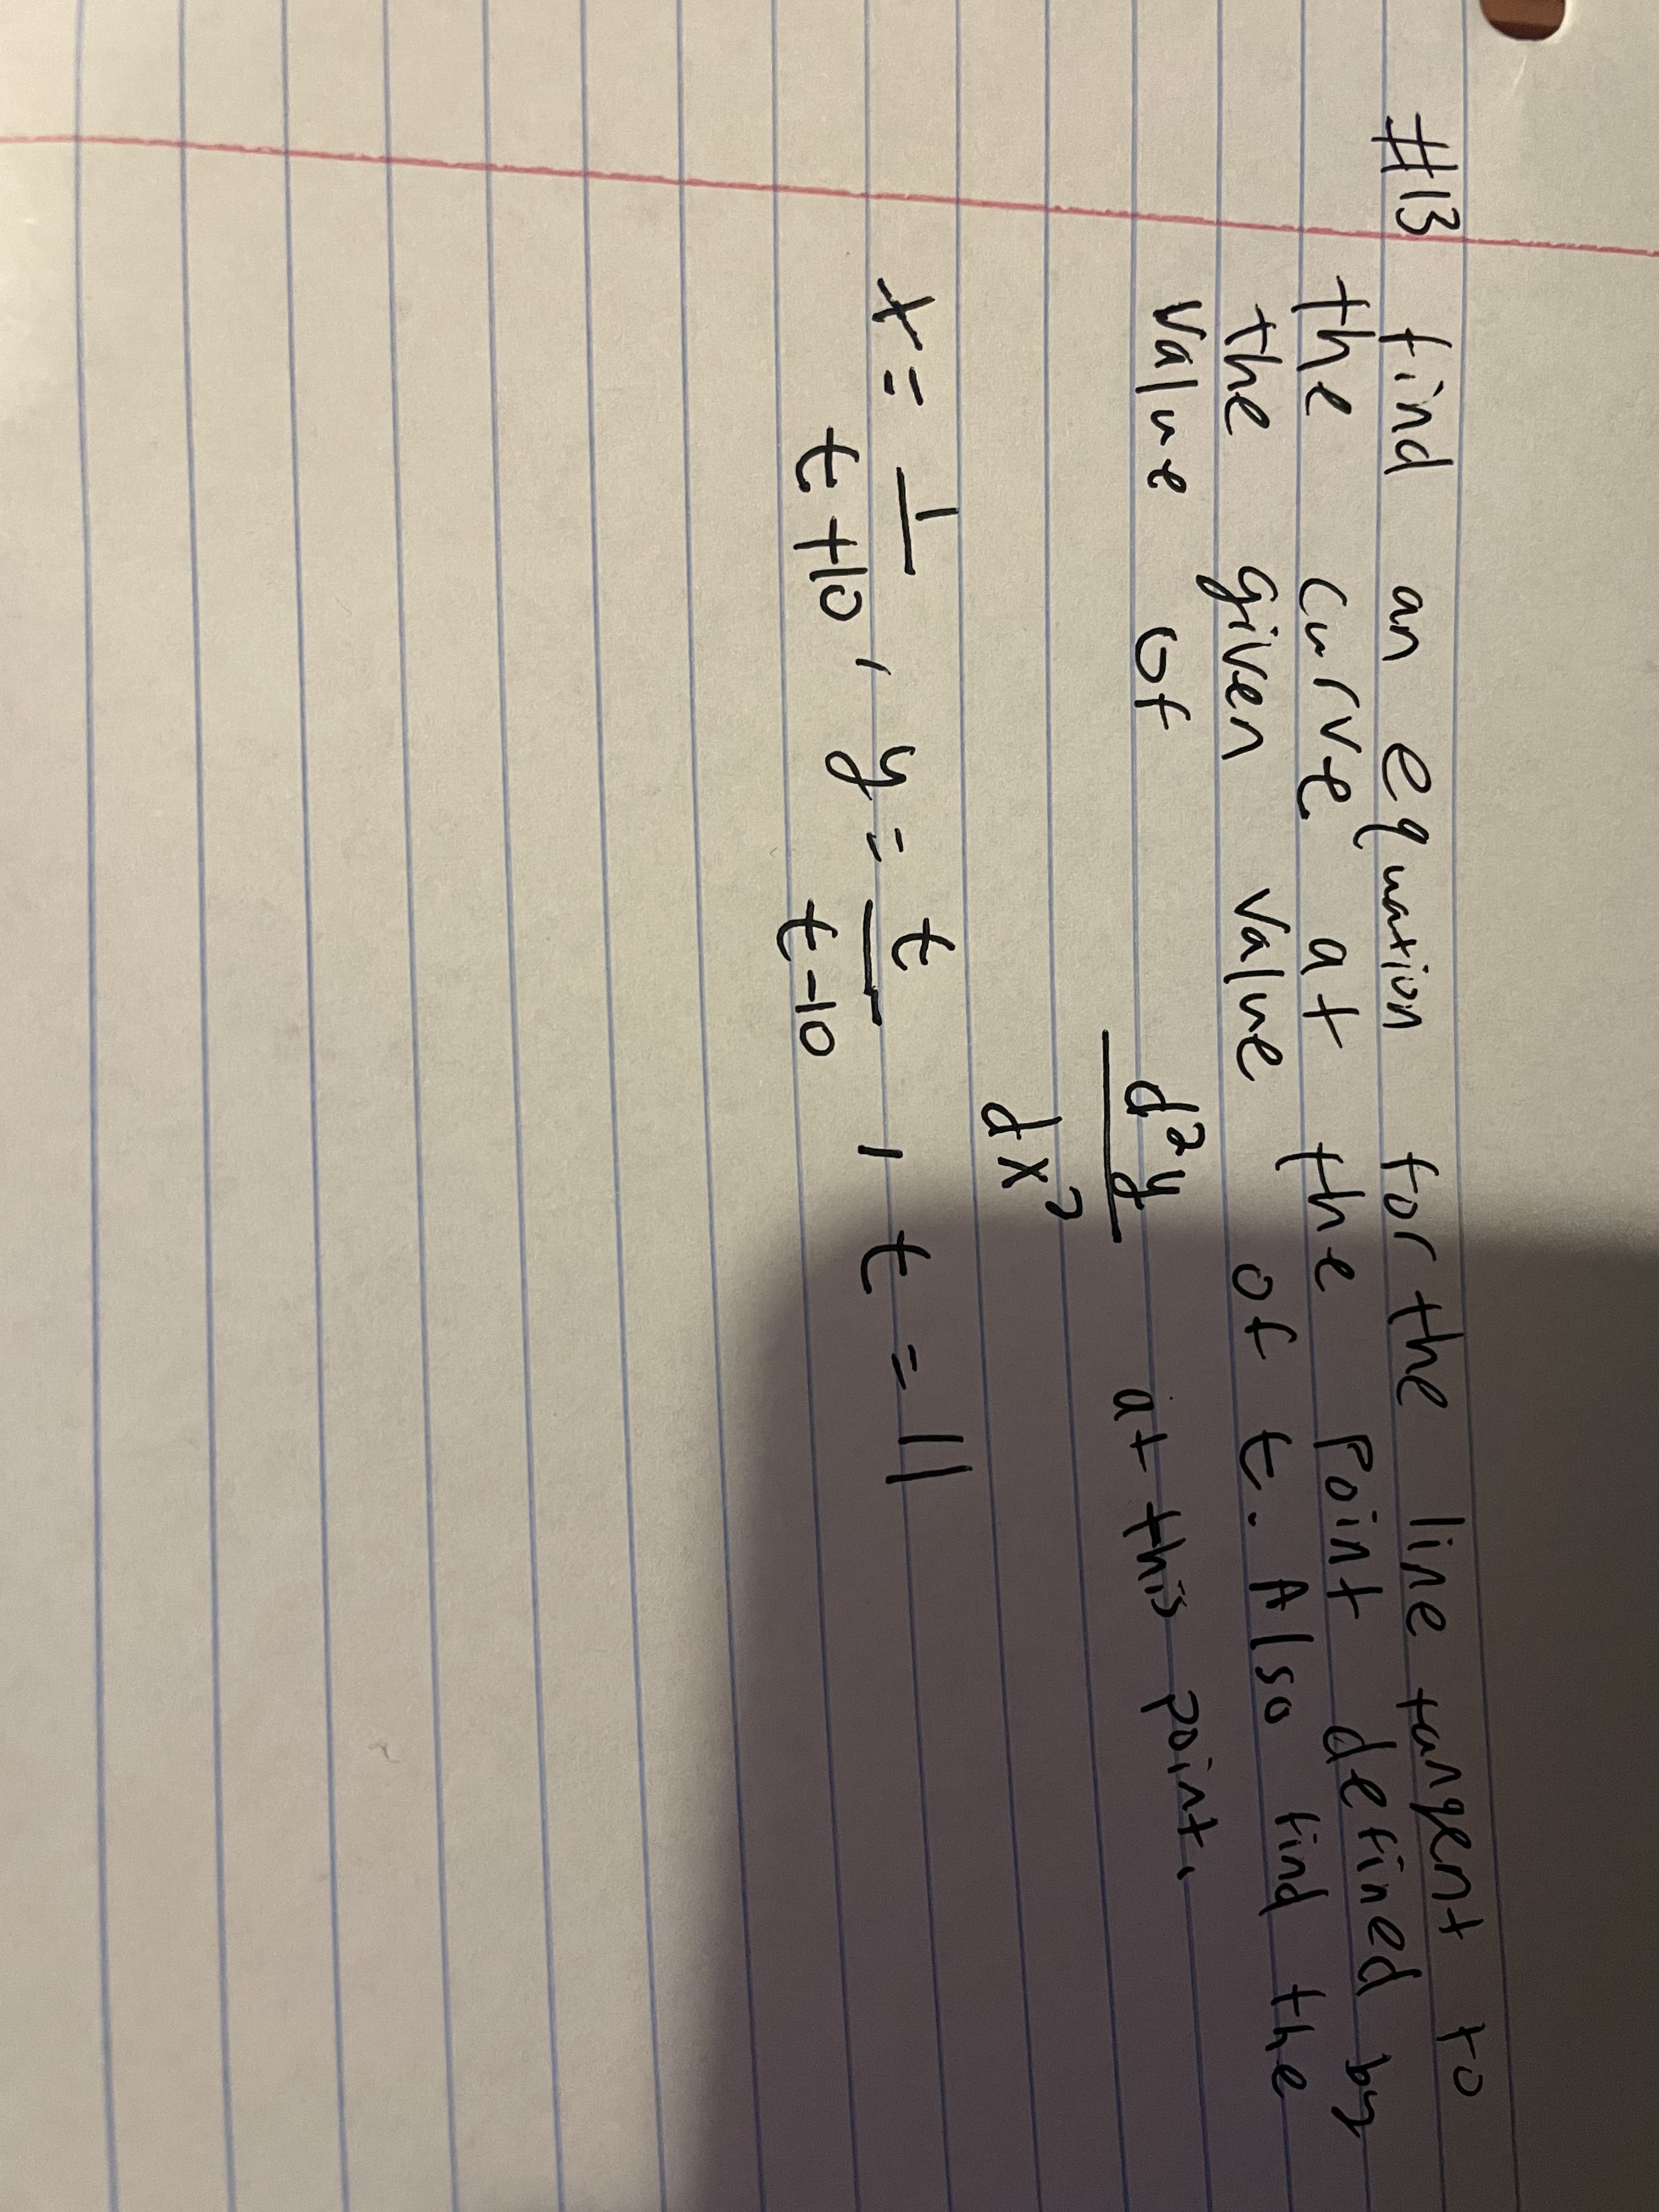 #13 find an equation for the line tangent to
the curve at the point defined by
the given value of t. Also find the
value of d²y/dx² at this point.
x = 1/(t+10), y = t/(t-10), t = 11